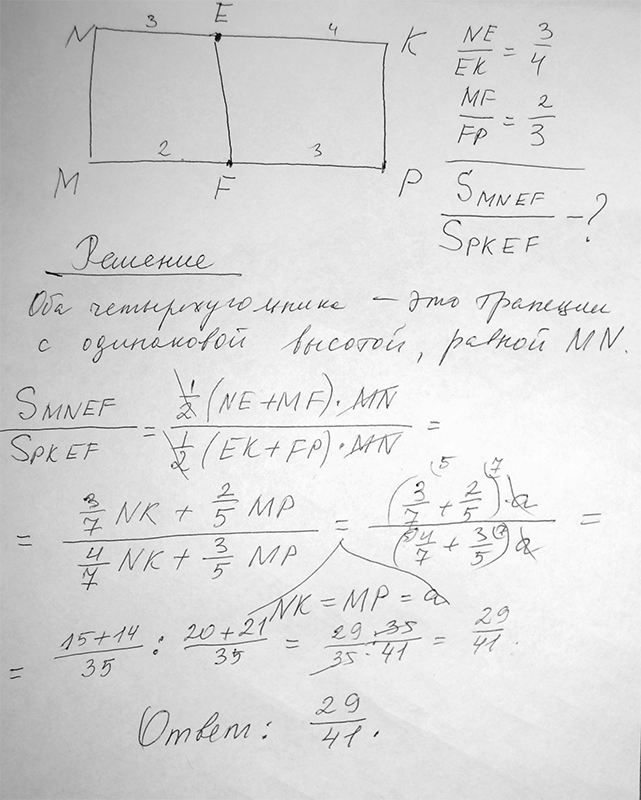 N 3 E 4 K
M 2 F 3 P
NE/EK = 3/4
MF/FP = 2/3
S MNEF / S PKEF - ?
Решение
Оба четырехугольника — это трапеции
с одинаковой высотой, равной MN.
S MNEF / S PKEF = 1/2 (NE+MF)·MN / 1/2 (EK+FP)·MN =
= (3/7 NK + 2/5 MP) / (4/7 NK + 3/5 MP) = (3/7 + 2/5)·a / (4/7 + 3/5)·a =
NK = MP = a
= 15+14/35 : 20+21/35 = 29·35/35·41 = 29/41.
Ответ: 29/41.